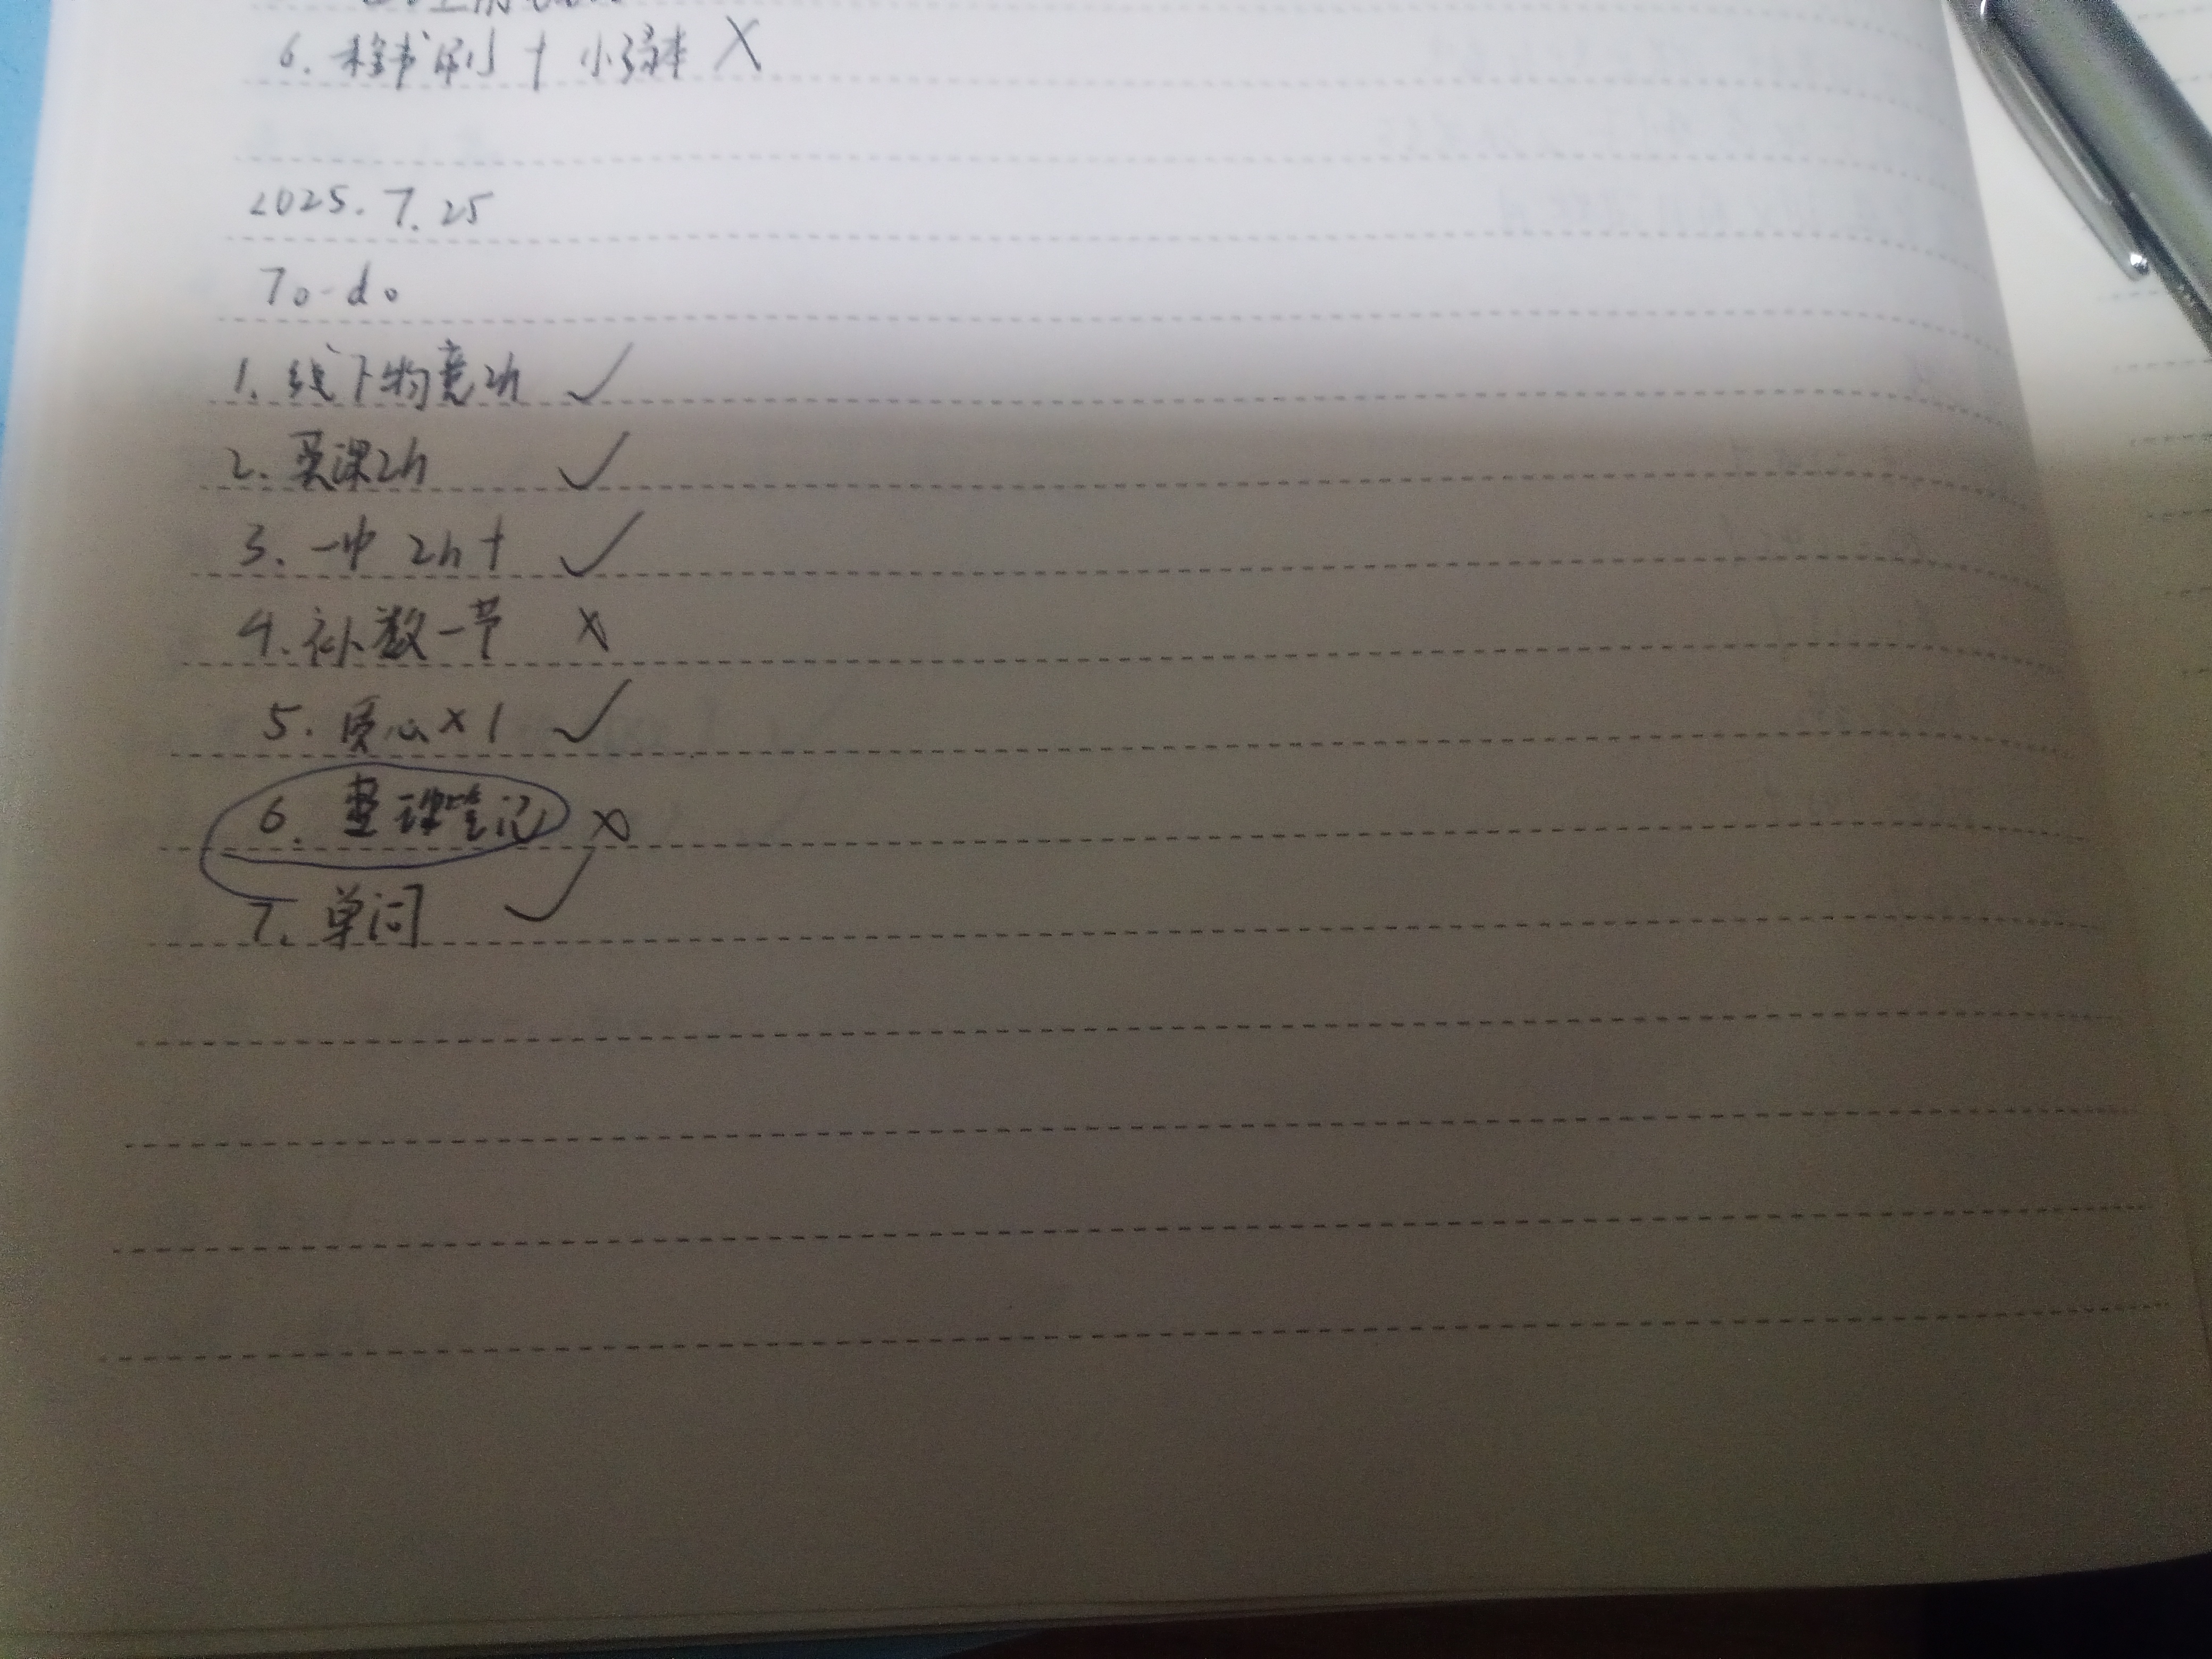 6. 程书刷 + 小绿本 X
2025.7.25
To-do
1. 线下物竞2h ✓
2. 英课2h ✓
3. 一中 2h+ ✓
4. 补数一节 ×
5. 质心×1 ✓
6. 整理笔记 ×
7. 单词 ✓